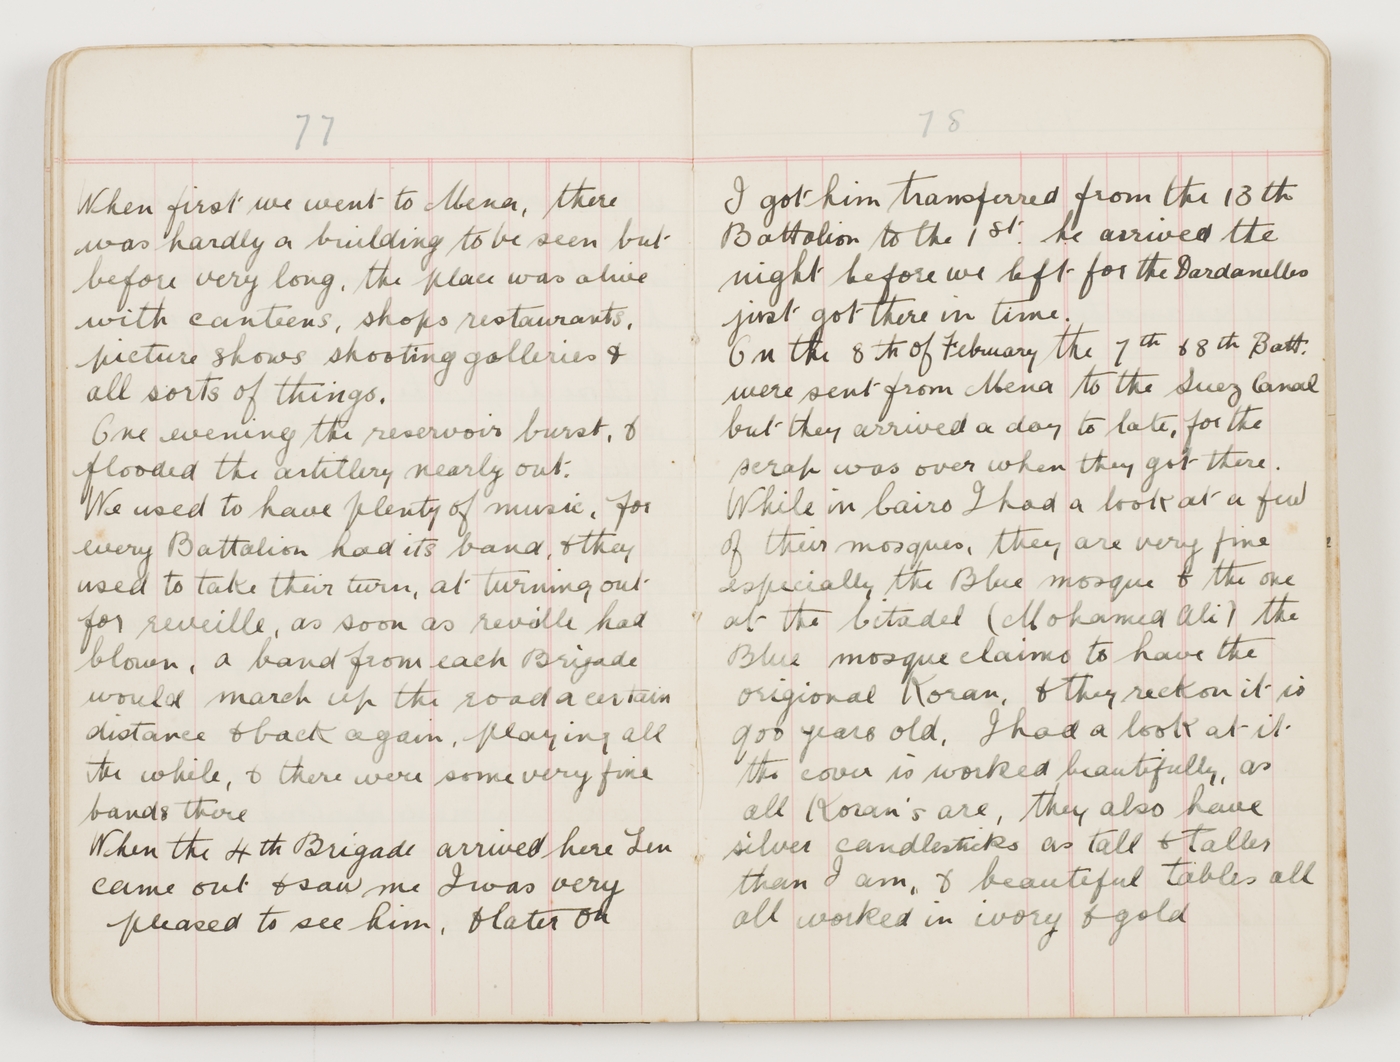 77
When first we went to Mena, there
was hardly a building to be seen but
before very long, the place was alive
with canteens, shops restaurants,
picture shows shooting galleries &
all sorts of things.
One evening the reservoir burst, &
flooded the artillery nearly out.
We used to have plenty of music, for
every Battalion had its band, & they
used to take their turn, at turning out
for reveille, as soon as reville had
blown, a band from each Brigade
would march up the road a certain
distance & back again, playing all
the while, & there were some very fine
bands there
When the 4th Brigade arrived here Len
came out & saw me I was very
pleased to see him, & later on
78
I got him transferred from the 13th
Battalion to the 1st. he arrived the
night before we left for the Dardanelles
just got there in time.
On the 8th of February the 7th & 8th Batt.
were sent from Mena to the Suez Canal
but they arrived a day to late, for the
scrap was over when they got there.
While in Cairo I had a look at a few
of their mosques, they are very fine
especially the Blue mosque & the one
at the Citadel (Mohamed Ali) the
Blue mosque claims to have the
origional Koran, & they reckon it is
900 years old, I had a look at it
the cover is worked beautifully, as
all Koran's are, they also have
silver candlesticks as tall & taller
than I am, & beautiful tables all
all worked in ivory & gold